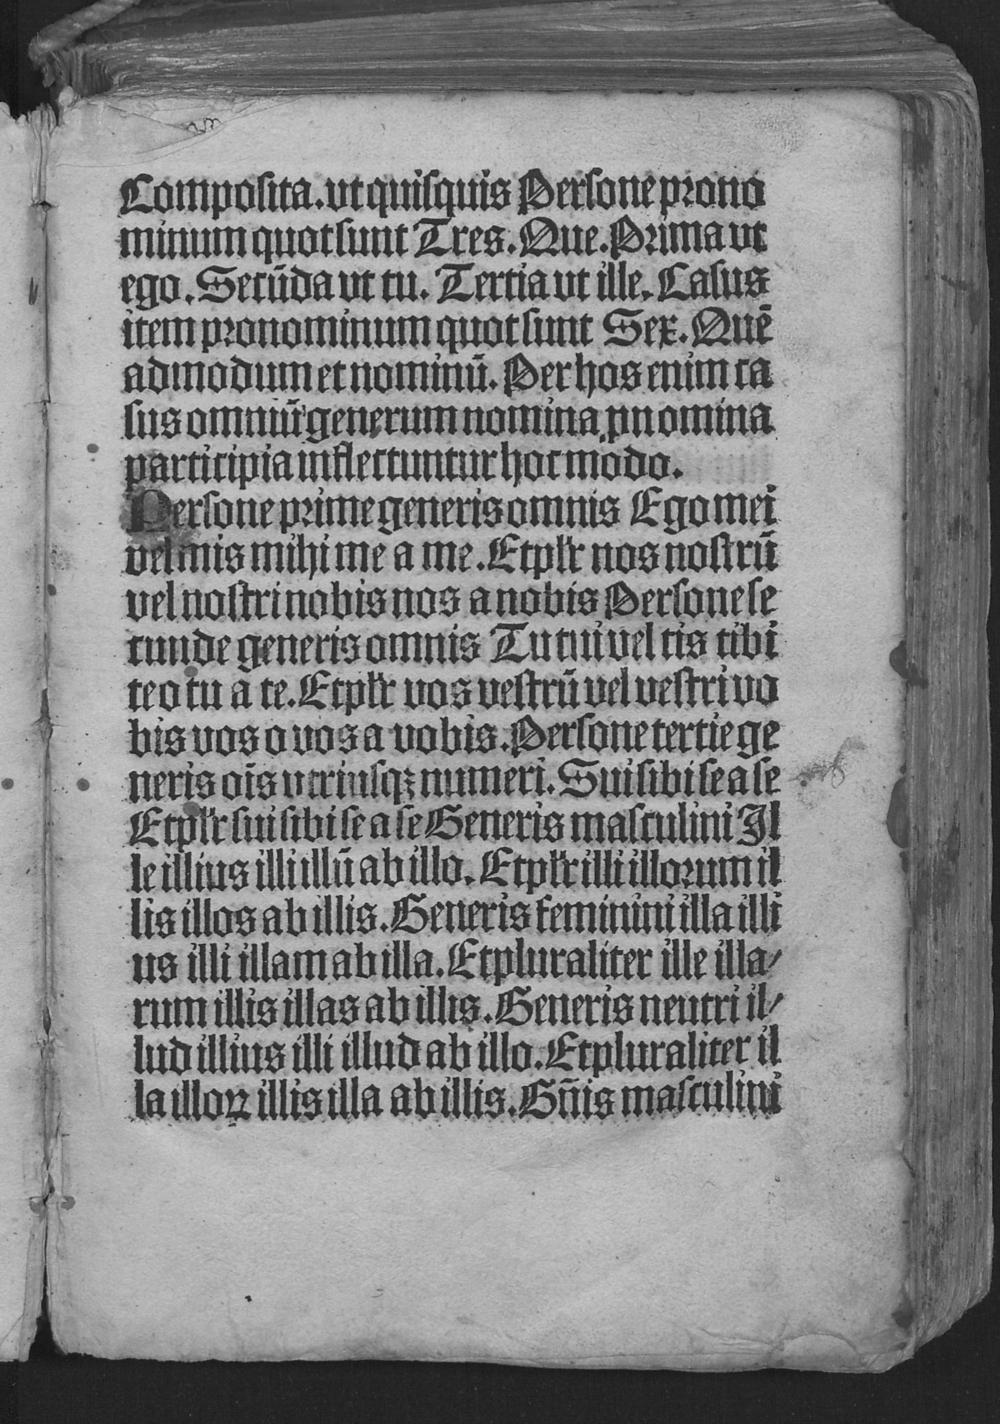 Composita. vt quisquis Persone prono
minum quot sunt Tres. Que. Prima ut
ego. Secūda ut tu. Tertia ut ille. Casus
item pronominum quot sunt Sex. Quē
admodum et nominū. Per hos enim ca
sus omniū generum nomina ꝓnomina
participia inflectuntur hoc modo.
Persone prime generis omnis Ego mei
vel mis mihi me a me. Et pl̄r nos nostrū
vel nostri nobis nos a nobis Persone se
cunde generis omnis Tu tui vel tis tibi
te o tu a te. Et pl̄r vos vestrū vel vestri vo
bis vos o vos a vobis. Persone tertie ge
neris oīs utriusqꝫ numeri. Sui sibi se a se
Et pl̄r sui sibi se a se Generis masculini Il
le illius illi illū ab illo. Et pl̄r illi illorum il
lis illos ab illis. Generis feminini illa illi
us illi illam ab illa. Et pluraliter ille illa/
rum illis illas ab illis. Generis neutri il/
lud illius illi illud ab illo. Et pluraliter il
la illoꝝ illis illa ab illis. Gn̄is masculini